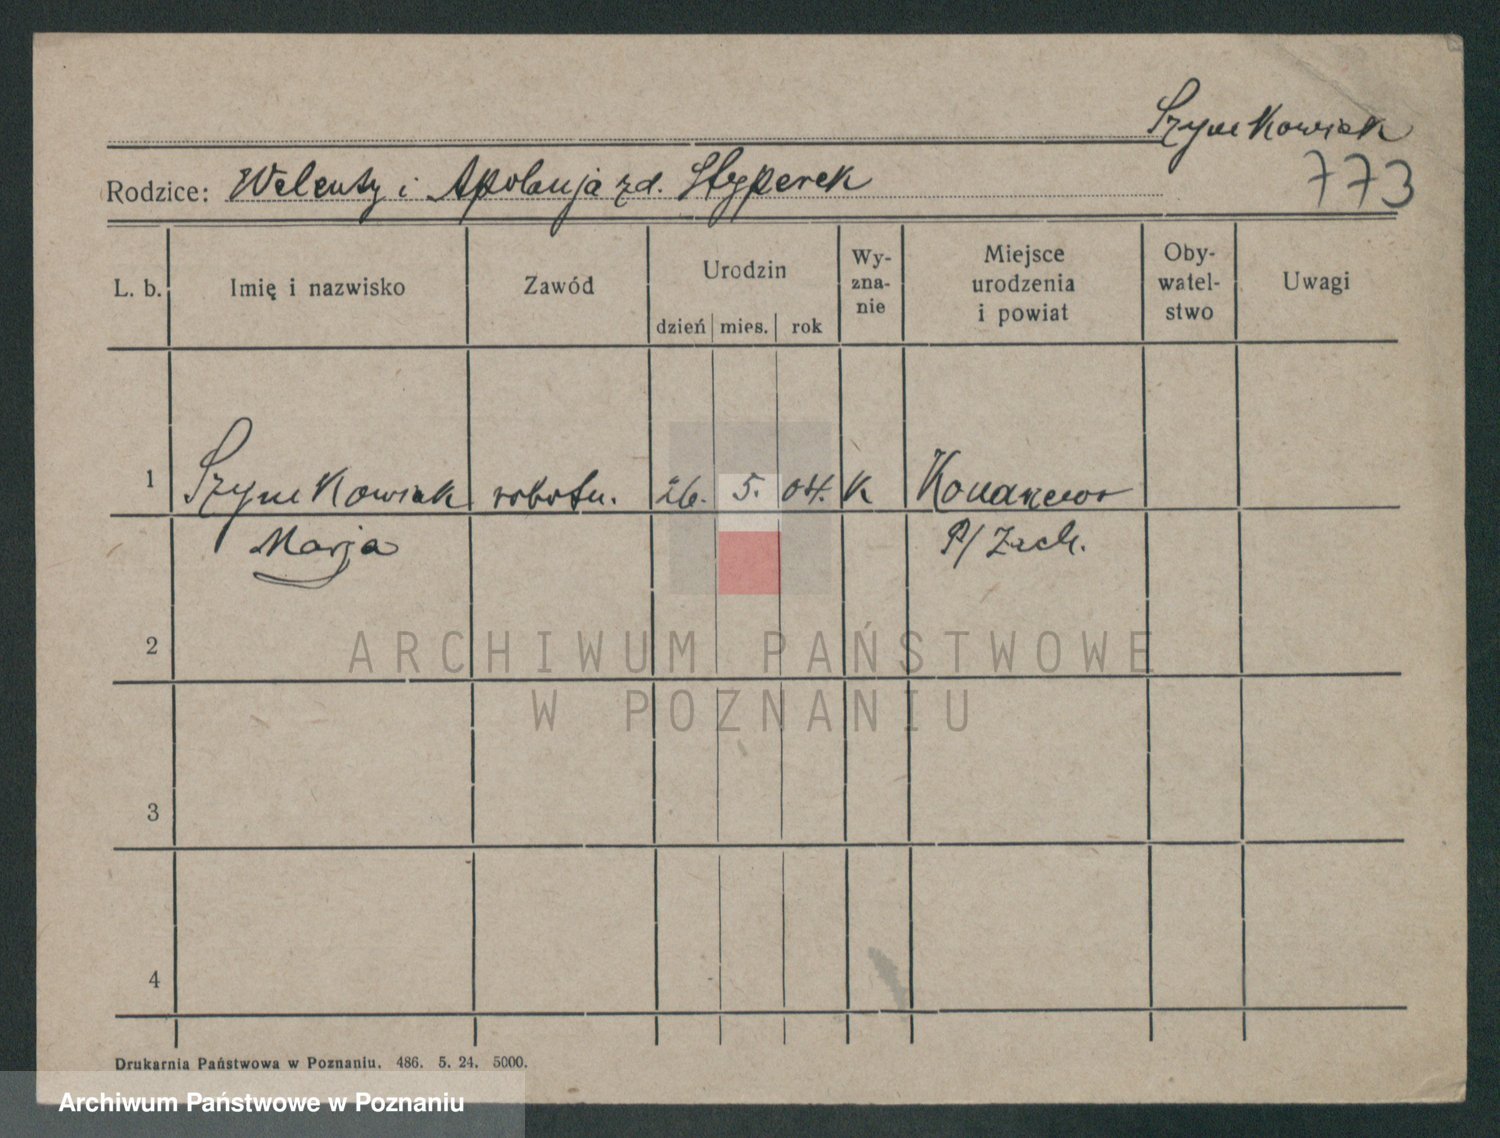 Szymkowiak
773
Rodzice: Walenty i Apolonja zd. Styperek
L. b. Imię i nazwisko Zawód Urodzin dzień mies. rok Wy-zna-nie Miejsce urodzenia i powiat Oby-watel-stwo Uwagi
1 Szymkowiak robotn. 26. 5. 04. K Konarzewo
Marja P/ Zach.
2
ARCHIWUM PAŃSTWOWE
W POZNANIU
3
4
Drukarnia Państwowa w Poznaniu. 486. 5. 24. 5000.
Archiwum Państwowe w Poznaniu